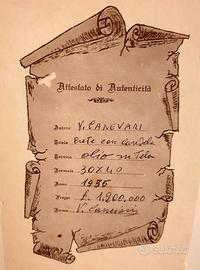 Attestato di Autenticità
Autore V. CANEVARI
Titolo Prete con candela
Tecnica olio su tela
Formato 30X40
Anno 1986
Prezzo £ 1.200.000
Firma V. Canevari
subito